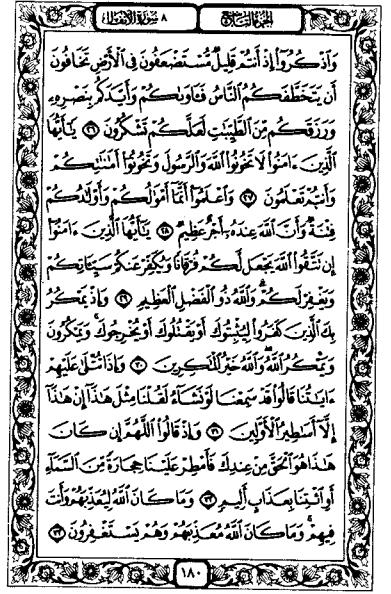 الجزء التاسع ٨ سورة الأنفال
وَاذْكُرُوا إِذْ أَنتُمْ قَلِيلٌ مُّسْتَضْعَفُونَ فِي الْأَرْضِ تَخَافُونَ
أَن يَتَخَطَّفَكُمُ النَّاسُ فَـَٔاوَىٰكُمْ وَأَيَّدَكُم بِنَصْرِهِۦ
وَرَزَقَكُم مِّنَ الطَّيِّبَـٰتِ لَعَلَّكُمْ تَشْكُرُونَ ٢٦ يَـٰٓأَيُّهَا
الَّذِينَ ءَامَنُوا لَا تَخُونُوا اللَّهَ وَالرَّسُولَ وَتَخُونُوٓا أَمَـٰنَـٰتِكُمْ
وَأَنتُمْ تَعْلَمُونَ ٢٧ وَاعْلَمُوٓا أَنَّمَآ أَمْوَٰلُكُمْ وَأَوْلَـٰدُكُمْ
فِتْنَةٌ وَأَنَّ اللَّهَ عِندَهُۥٓ أَجْرٌ عَظِيمٌ ٢٨ يَـٰٓأَيُّهَا الَّذِينَ ءَامَنُوٓا
إِن تَتَّقُوا اللَّهَ يَجْعَل لَّكُمْ فُرْقَانًا وَيُكَفِّرْ عَنكُمْ سَيِّـَٔاتِكُمْ
وَيَغْفِرْ لَكُمْ وَاللَّهُ ذُو الْفَضْلِ الْعَظِيمِ ٢٩ وَإِذْ يَمْكُرُ
بِكَ الَّذِينَ كَفَرُوا لِيُثْبِتُوكَ أَوْ يَقْتُلُوكَ أَوْ يُخْرِجُوكَ وَيَمْكُرُونَ
وَيَمْكُرُ اللَّهُ وَاللَّهُ خَيْرُ الْمَـٰكِرِينَ ٣٠ وَإِذَا تُتْلَىٰ عَلَيْهِمْ
ءَايَـٰتُنَا قَالُوا قَدْ سَمِعْنَا لَوْ نَشَآءُ لَقُلْنَا مِثْلَ هَـٰذَآ إِنْ هَـٰذَآ
إِلَّآ أَسَـٰطِيرُ الْأَوَّلِينَ ٣١ وَإِذْ قَالُوا اللَّهُمَّ إِن كَانَ
هَـٰذَا هُوَ الْحَقَّ مِنْ عِندِكَ فَأَمْطِرْ عَلَيْنَا حِجَارَةً مِّنَ السَّمَآءِ
أَوِ ائْتِنَا بِعَذَابٍ أَلِيمٍ ٣٢ وَمَا كَانَ اللَّهُ لِيُعَذِّبَهُمْ وَأَنتَ
فِيهِمْ وَمَا كَانَ اللَّهُ مُعَذِّبَهُمْ وَهُمْ يَسْتَغْفِرُونَ ٣٣
١٨٠